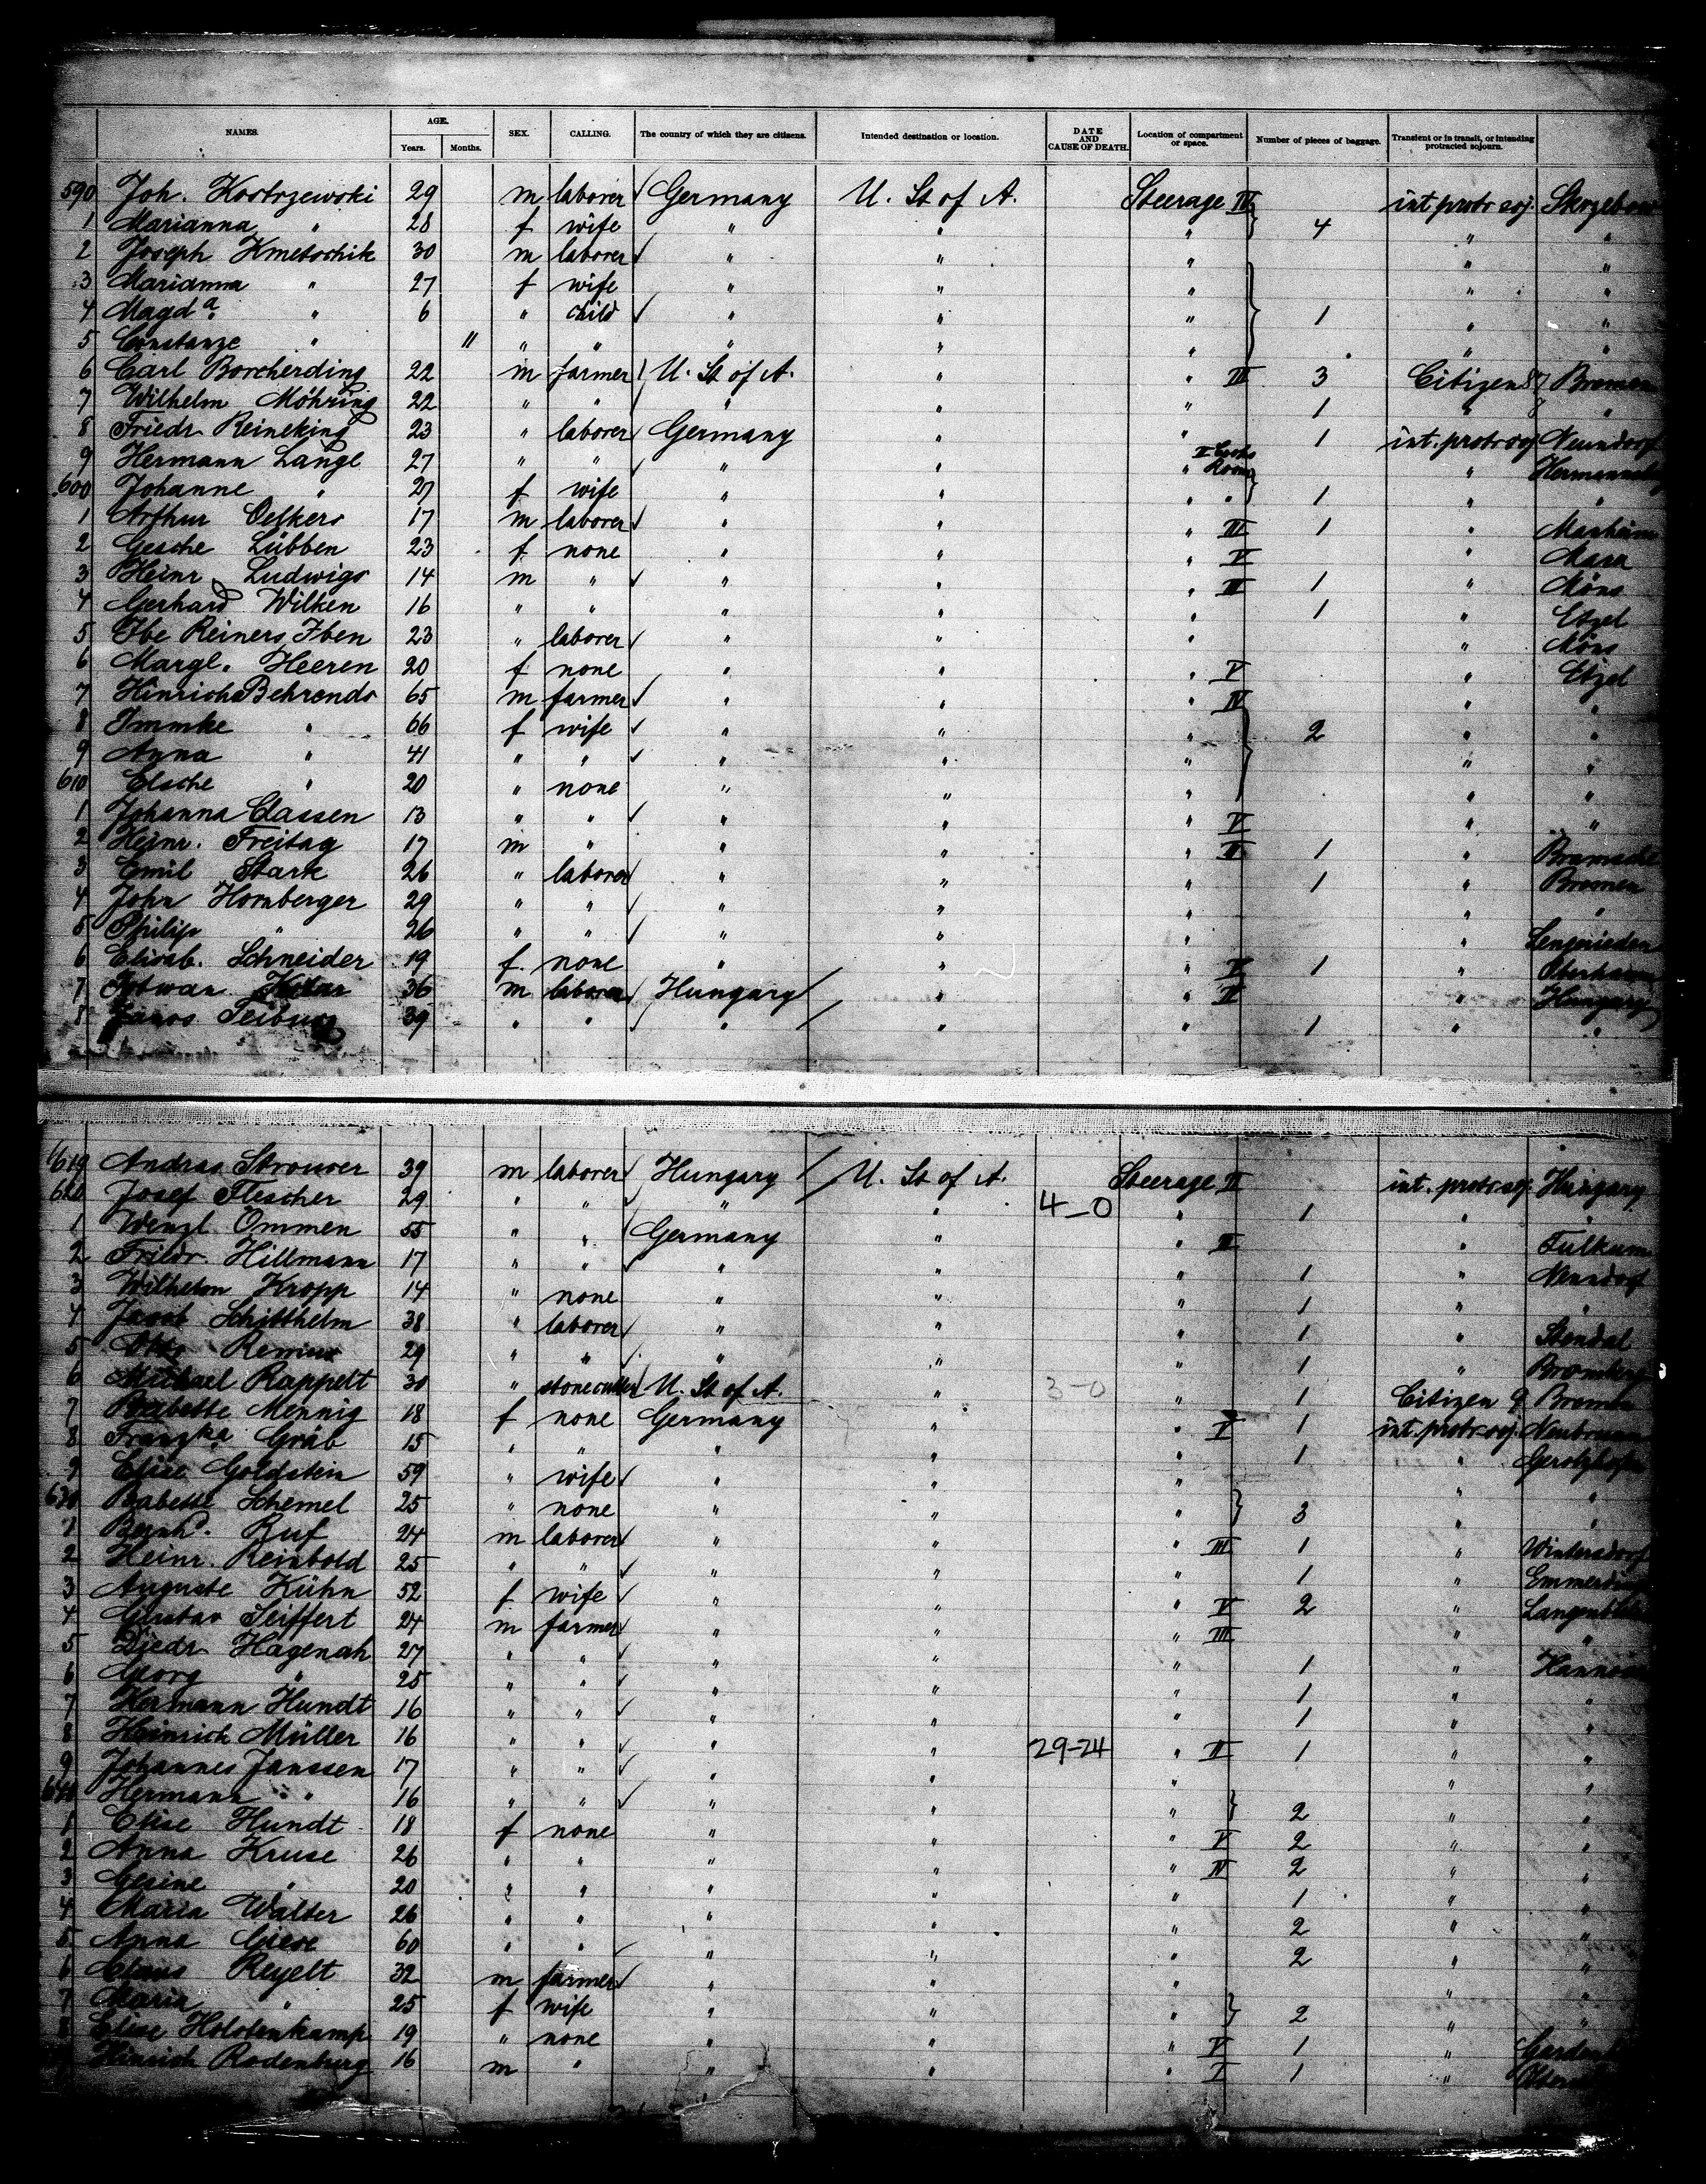 NAMES. AGE. Years. Months. SEX. CALLING. The country of which they are citizens. Intended destination or location. DATE AND CAUSE OF DEATH. Location of compartment or space. Number of pieces of baggage. Transient or in transit, or intending protracted sojourn.
590 Joh. Kostrzewski 29 m laborer Germany U. St of A. Steerage IV int protr soj.
1 Marianna " 28 f wife " " " 4 " "
2 Joseph Kmetschik 30 m laborer " " " " "
3 Marianna " 27 f wife " " " " "
4 Magda " 6 " child " " " 1 " "
5 Constanze " 11 " " " " " " "
6 Carl Borcherding 22 m farmer U. St of A. " " III 3 Citizen 87 Bremen
7 Wilhelm Möhring 22 " " " " " 1 " "
8 Friedr. Reineking 23 " laborer Germany " " 1 int. protr soj Nenndorf
9 Hermann Lange 27 " " " " " Room "
600 Johanne " 27 f wife " " " " 1 " "
1 Arthur Oelkers 17 m laborer " " " III 1 " Manheim
2 Gesche Lübben 23 f none " " " V "
3 Heinr. Ludwigs 14 m " " " " III 1 "
4 Gerhard Wilken 16 " " " " " 1 " Etzel
5 Ibe Reiners Iben 23 " laborer " " " "
6 Margt. Heeren 20 f none " " " V " Etzel
7 Hinrich Behrends 65 m farmer " " " IV " "
8 Immke " 66 f wife " " " 2 " "
9 Anna " 41 " " " " " " "
610 Elsche " 20 " none " " " " "
1 Johanna Classen 13 " " " " " V " "
2 Heinr. Freitag 17 m " " " " II 1 " Bramsche
3 Emil Stark 26 " laborer " " " 1 " Bremen
4 John Hornberger 29 " " " " " " "
5 Philip " 26 " " " " " "
6 Elisab. Schneider 19 f. none " " " V 1 "
7 36 m laborer Hungary " " II " Hungary
8 Janos 39 " " " " " 1 " "
619 Andras Strouver 39 m laborer Hungary U. St of A. Steerage II int. protr soj. Hungary
620 Josef Flescher 29 " " " " 4-0 " 1 " "
1 Wenzl Ommen 55 " " Germany " " III " Fulkum
2 Friedr. Hillmann 17 " " " " " 1 " Nenndorf
3 Wilhelm Kropp 14 " none " " " 1 " "
4 Jacob Schitthelm 38 " laborer " " " 1 " Stendal
5 Otto 29 " " " " " 1 " Bromberg
6 Michael Rappelt 30 " stonecutter U. St of A. " 3-0 " 1 Citizen 9 Bremen
7 Babette Mennig 18 f none Germany " " V 1 int. protr soj.
8 Franzka Gräb 15 " " " " " 1 " Gerolzhofen
9 Elise Goldstein 59 " wife " " " " "
630 Babette Schemel 25 " none " " " 3 " "
1 Bernhd. Ruf 24 m laborer " " " III 1 " Wintersdorf
2 Heinr. Reinbold 25 " " " " " 1 "
3 Auguste Kühn 52 f wife " " " V 2 "
4 Gustav Seiffert 24 m farmer " " " III " "
5 Diedr. Hagenah 27 " " " " " 1 " Hannover
6 Georg " 25 " " " " " 1 " "
7 Hermann Hundt 16 " " " " " 1 " "
8 Heinrich Müller 16 " " " " 29-24 " II 1 " "
9 Johannes Janssen 17 " " " " " " "
640 Hermann " 16 " " " " " 2 " "
1 Elise Hundt 18 f none " " " V 2 " "
2 Anna Kruse 26 " " " " " IV 2 " "
3 Gesine " 20 " " " " " 1 " "
4 Maria Walter 26 " " " " " 2 " "
5 Anna Giese 60 " " " " " 2 " "
6 Claus Reyelt 32 m farmer " " " " "
7 Maria " 25 f wife " " " 2 " "
8 Elise Holstenkamp 19 " none " " " V 1 "
Hinrich Rodenburg 16 m " " " " I 1 "